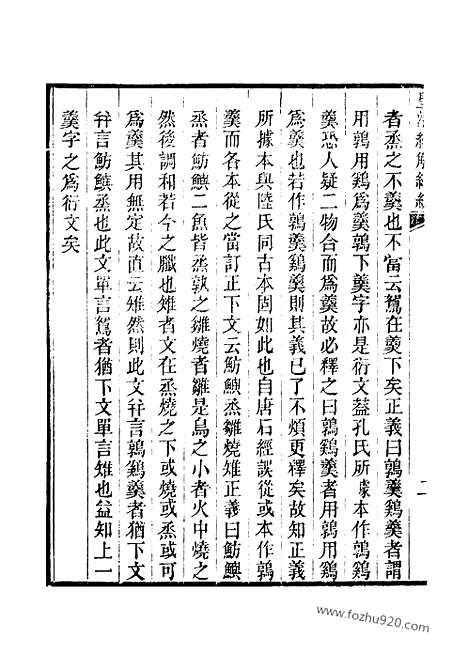 者烝之不羹也不當云鴽在羹下矣正義曰鶉羹鷄羹者謂
用鶉用鷄爲羹鶉下羹字亦是衍文葢孔氏所據本作鶉鷄
羹恐人疑二物合而爲羹故必釋之曰鶉鷄羹者用鶉用鷄
爲羹也若作鶉羹鷄羹則其義已了不煩更釋矣故知正義
所據本與陸氏同古本固如此也自唐石經誤從或本作鶉
羹而各本從之當訂正下文云魴鱮烝雛燒雉正義曰魴鱮
烝者魴鱮二魚皆烝孰之雛燒者雛是鳥之小者火中燒之
然後調和若今之臘也雉者文在烝燒之下或燒或烝或可
爲羹其用無定故直云雉然則此文幷言鶉鷄羹者猶下文
幷言魴鱮烝也此文單言鴽者猶下文單言雉也益知上一
羹字之爲衍文矣
二
www.fozhu920.com